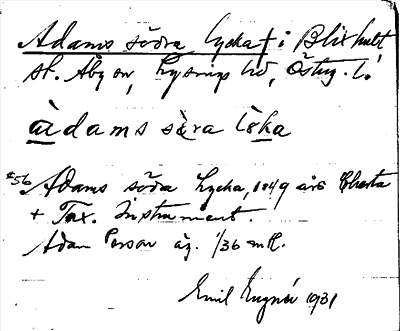 Adams södra lycka † i Blixhult
St. Åby sn, Lysings hd, Östg. l.
àdams sö̀ra lö̀ka
*56 Adams södra Lycka, 1849 års Charta
+ Tax. Instrument.
Adam Person äg. 1/36 mtl.
Emil 1931